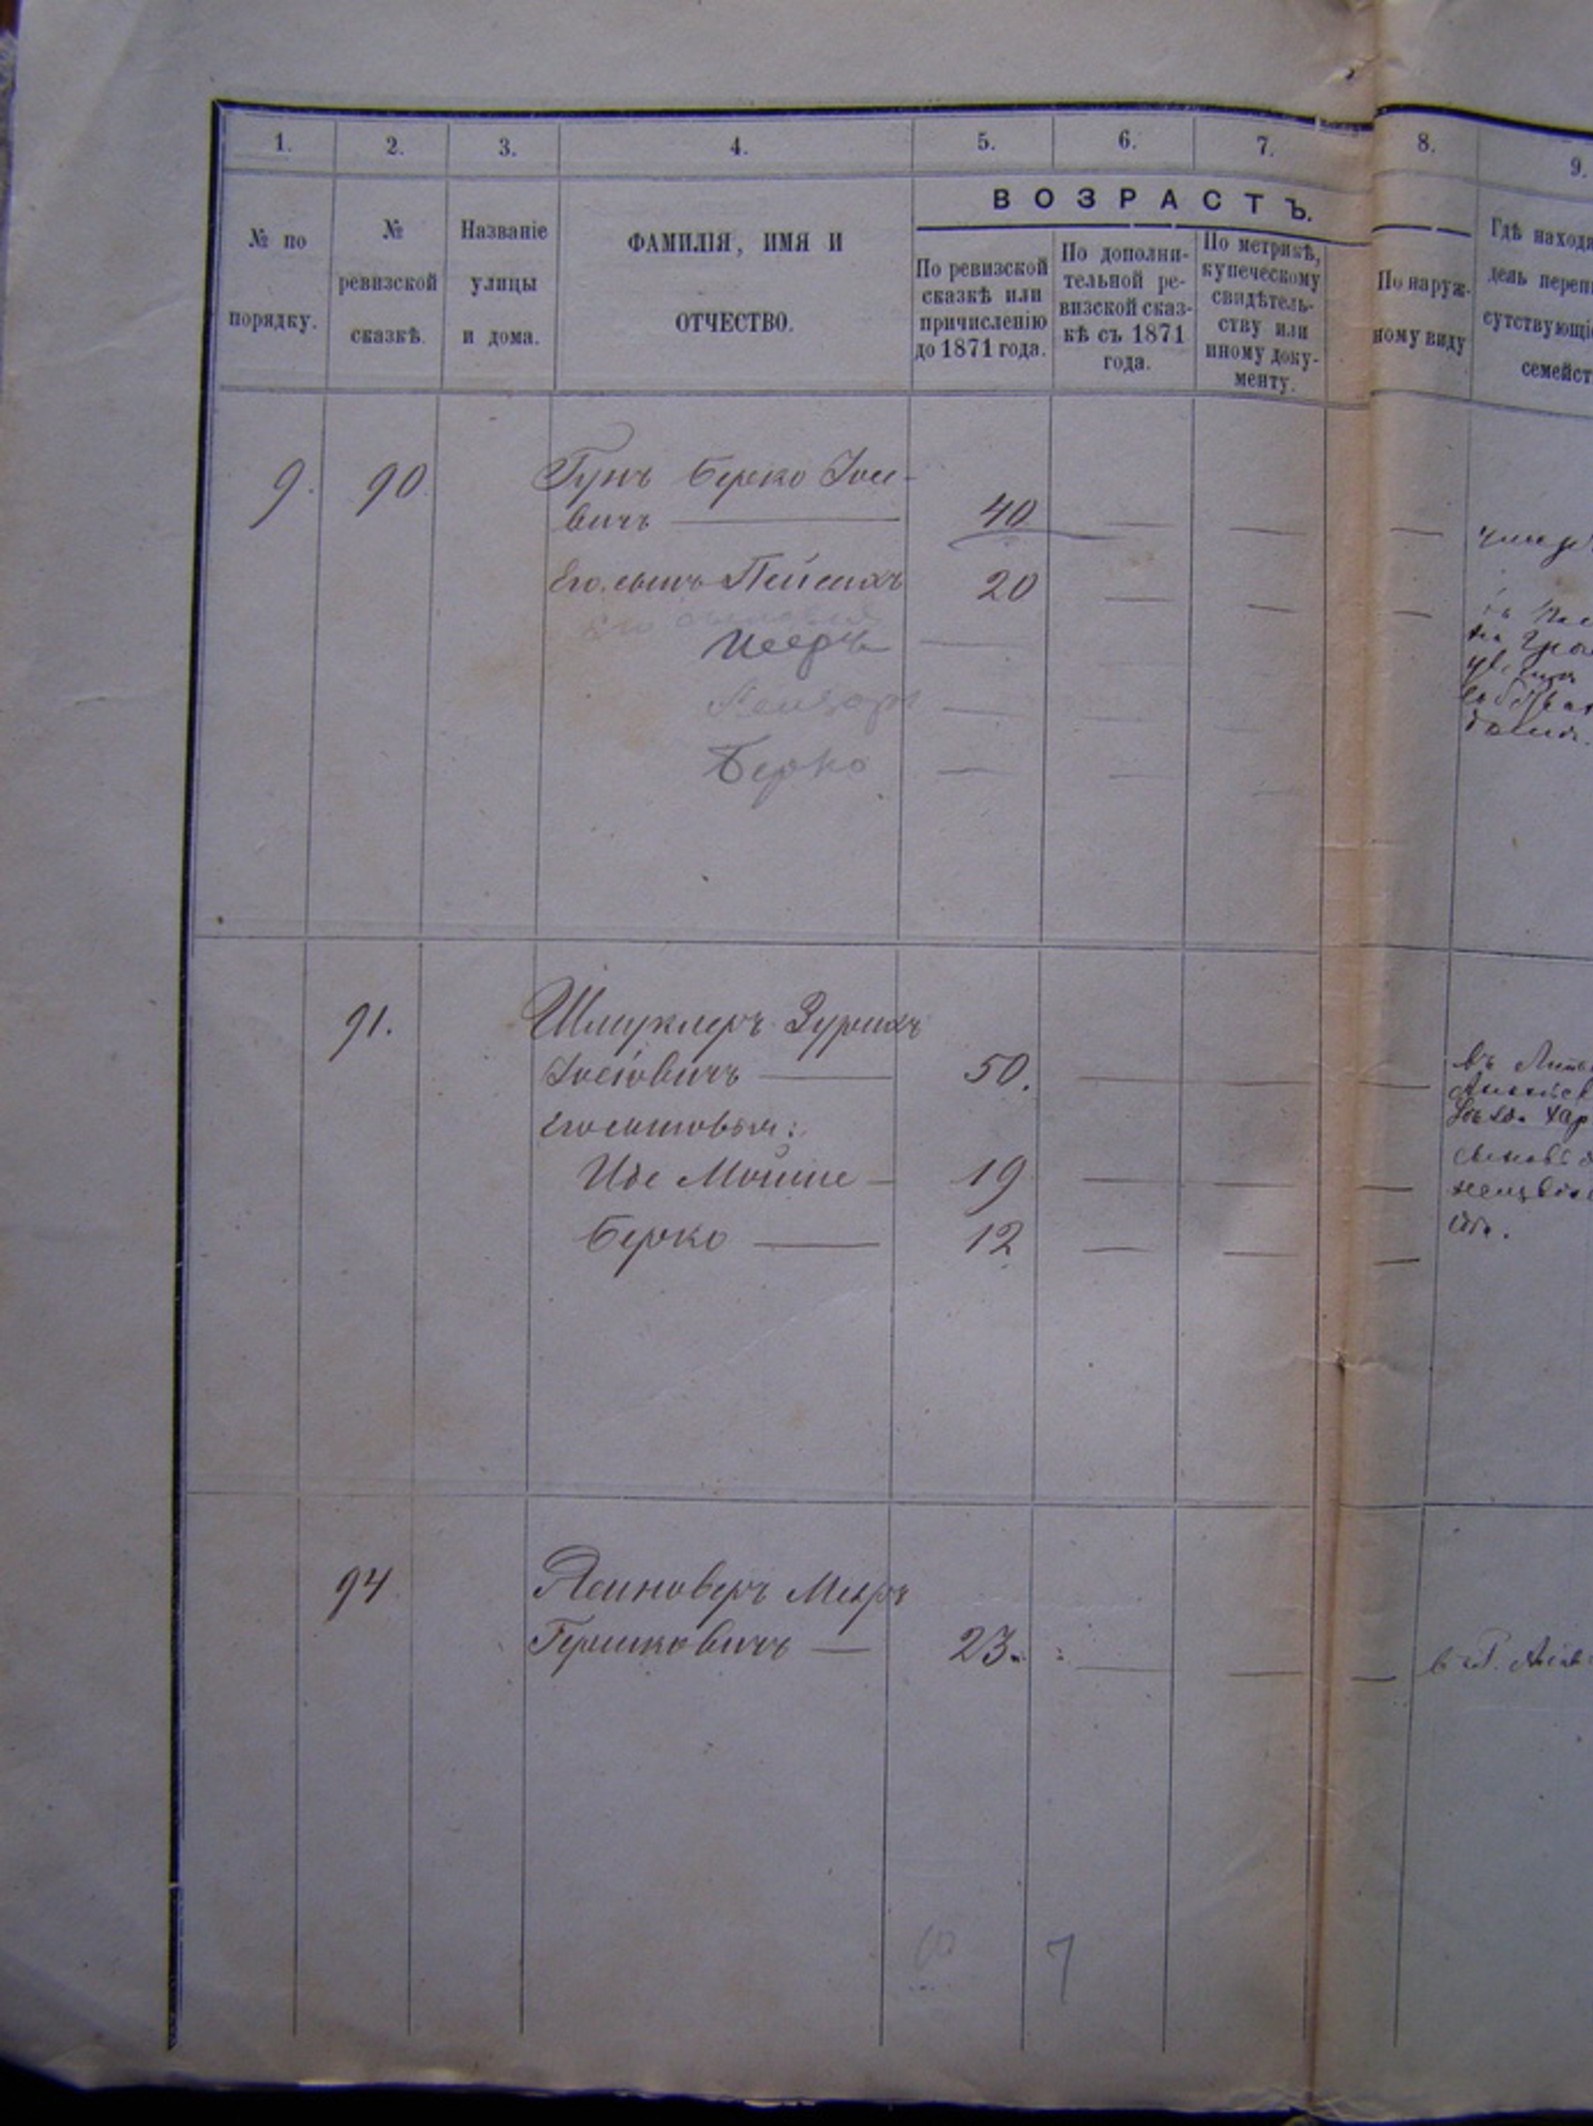 1.
2.
3.
4.
5.
6.
7.
8.
9.
№ по
порядку.
№
ревизской
сказкѣ.
Названіе
улицы
и дома.
ФАМИЛІЯ, ИМЯ И
ОТЧЕСТВО.
ВОЗРАСТЪ.
По ревизской
сказкѣ или
причисленію
до 1871 года.
По дополни-
тельной ре-
визской сказ-
кѣ съ 1871
года.
По метрикѣ,
купеческому
свидѣтель-
ству или
иному доку-
менту.
По наруж-
ному виду
Гдѣ находя
день переп
сутствующі
семейст
9. 90. Гунъ Берко Іосi-
вичъ — 40 — — —
Его сынъ Пейсахъ 20 — — —
Его сыновья
Мееръ —
Берко — —
91. Шмуклеръ Зурихъ
Іосiовичъ — 50. — — —
Его сыновья:
Иде Мойше — 19 — — —
Берко — 12 — — —
94 Ясиноверъ Мееръ
Гершковичъ — 23. — — —
7